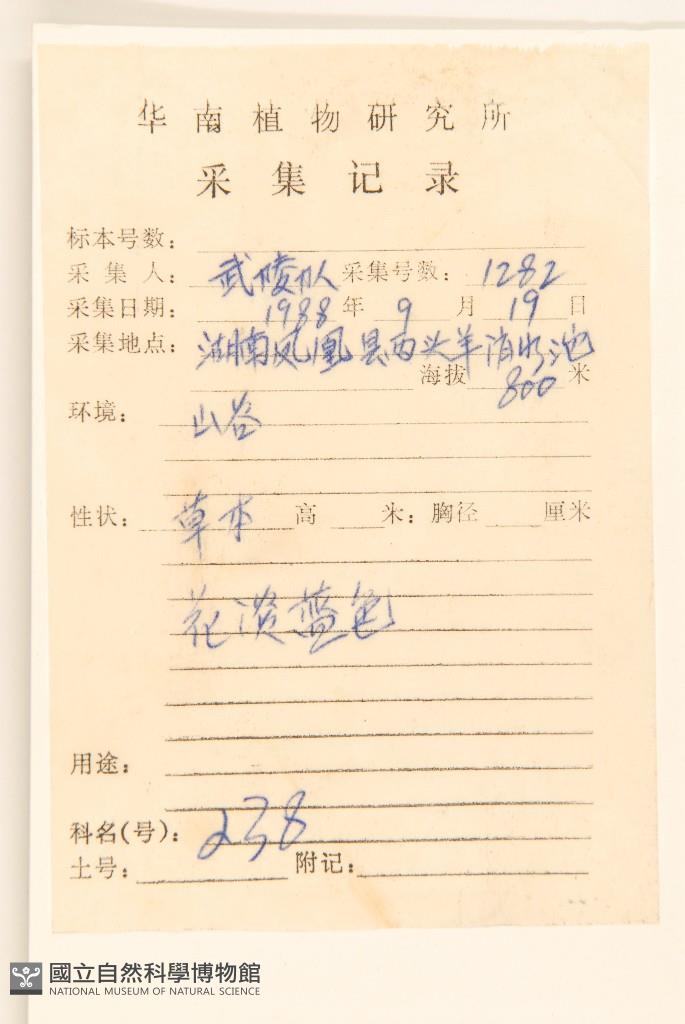 华南植物研究所
采集记录
标本号数：
采集人：武陵队 采集号数：1282
采集日期：1988年9月19日
采集地点：湖南凤凰县两头羊消水池
海拔800米
环境：山谷
性状：草本 高 米；胸径 厘米
花淡蓝色
用途：
科名(号)：238
土号： 附记：
國立自然科學博物館
NATIONAL MUSEUM OF NATURAL SCIENCE